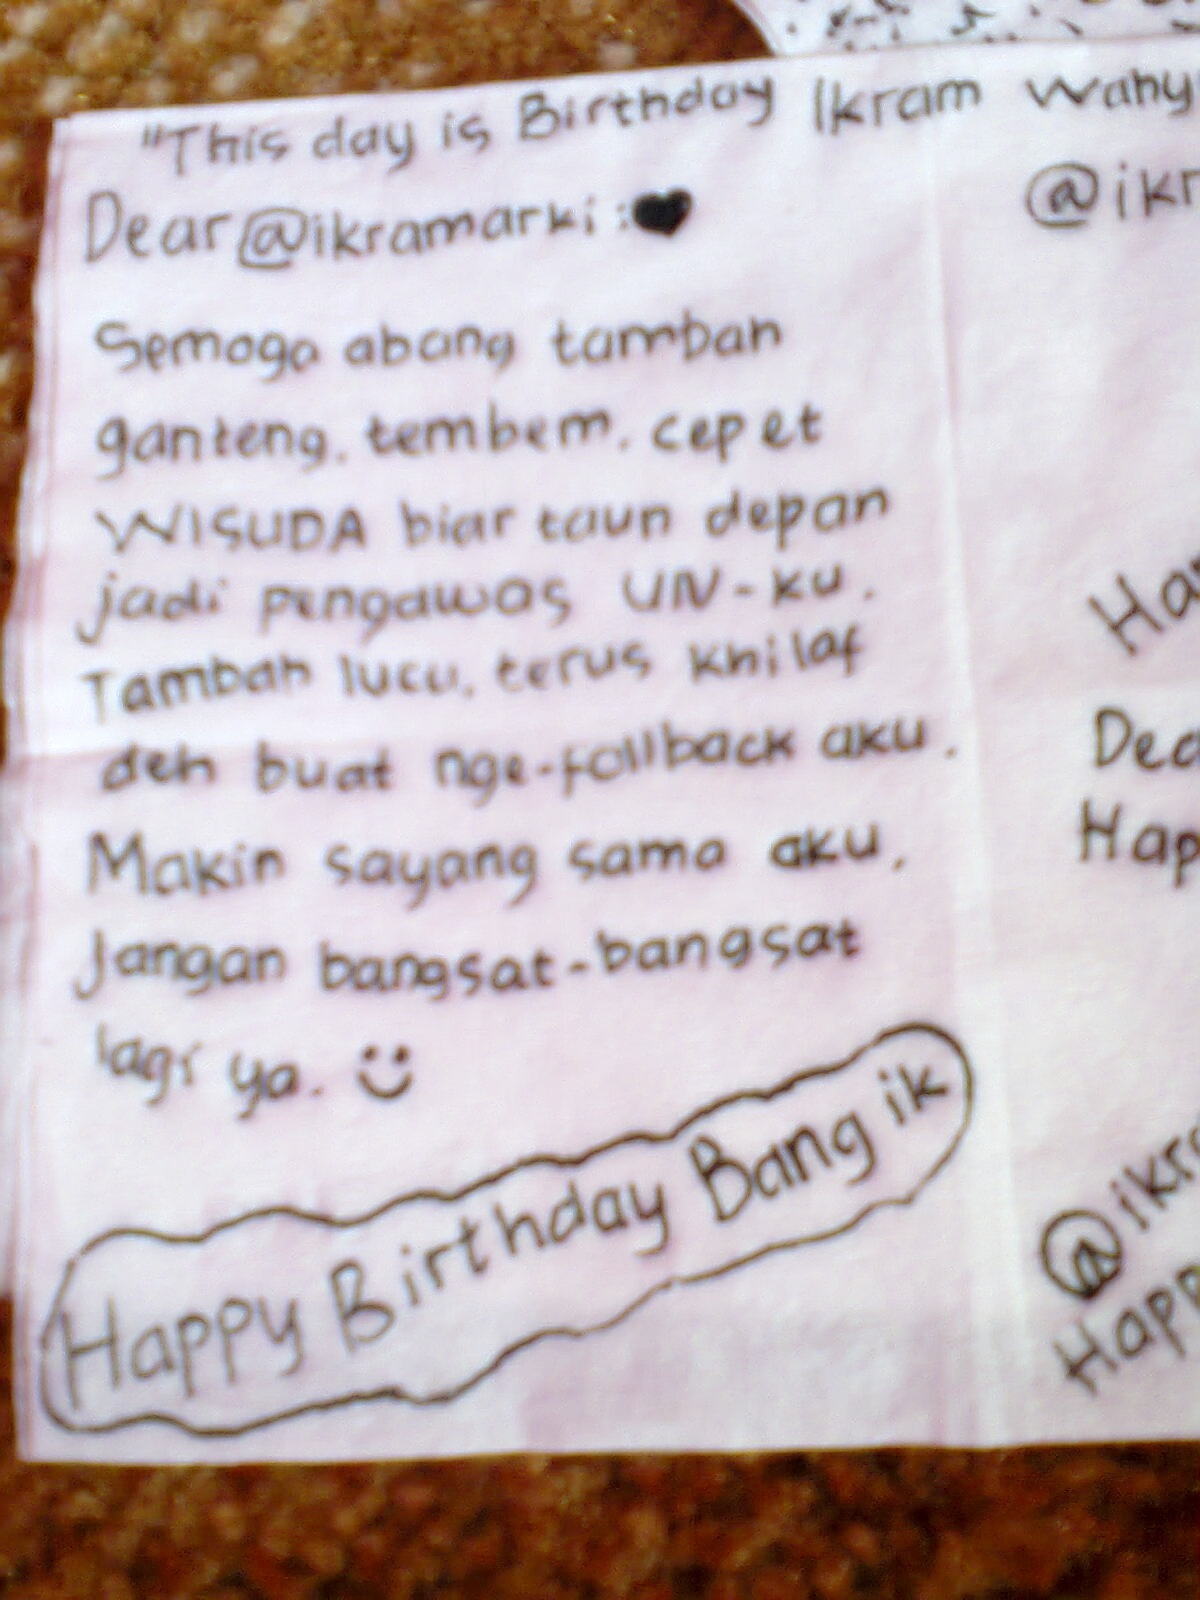 "This day is Birthday Ikram Wahy
Dear @ikramarki :♥
Semoga abang tambah
ganteng, tembem, cepet
WISUDA biar taun depan
jadi pengawas UN-ku.
Tambah lucu, terus khilaf
deh buat nge-follback aku.
Makin sayang sama aku,
Jangan bangsat-bangsat
lagi ya. ☺
Happy Birthday Bang ik
@ikr
Ha
Dea
Hap
@ikra
Happ